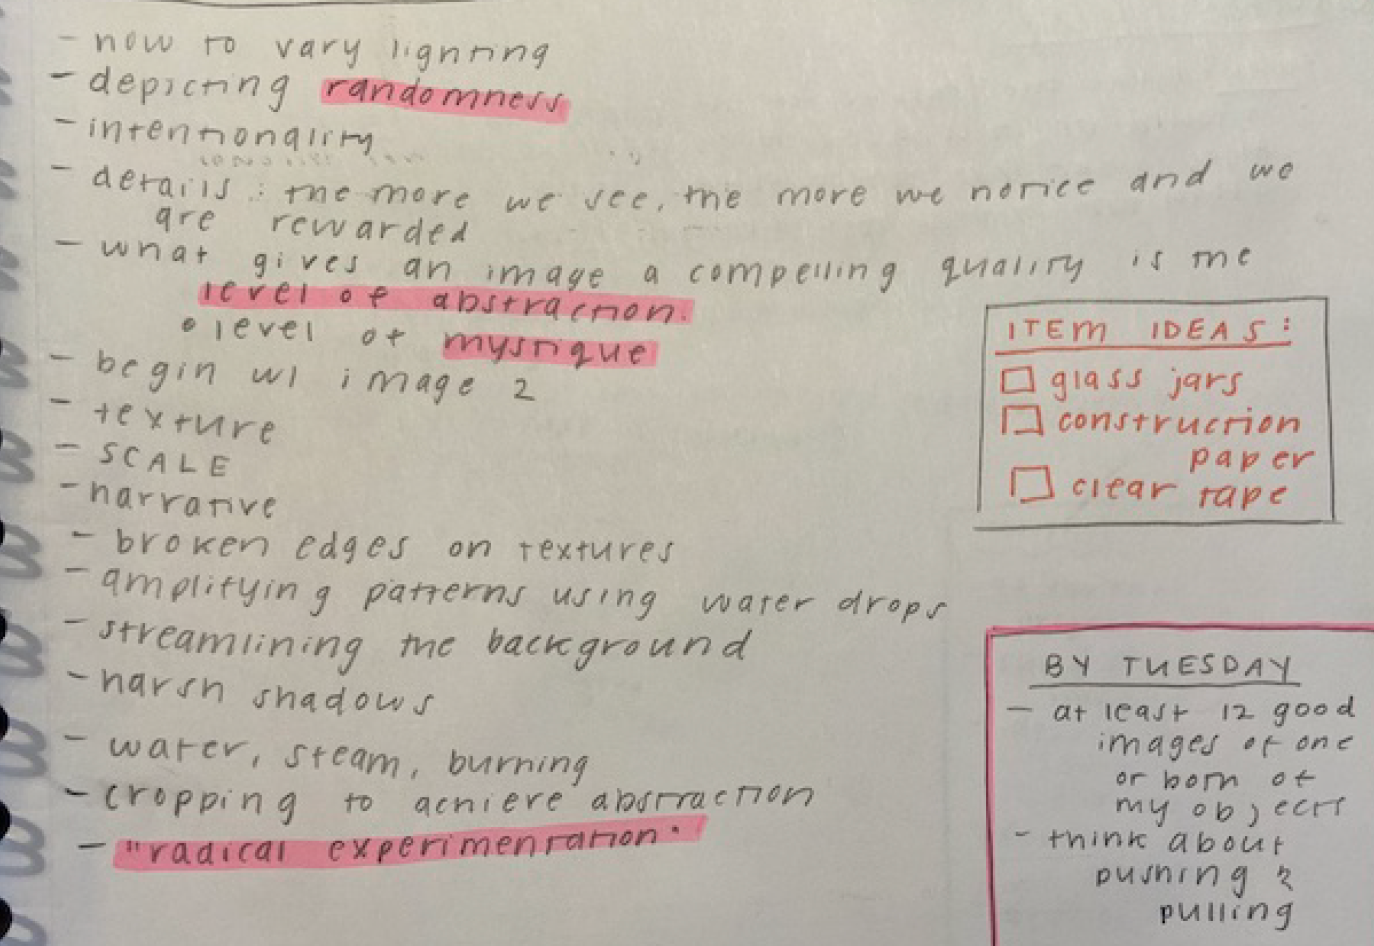 - how to vary lighting
- depicting randomness
- intentionality
- details : the more we see, the more we notice and we
are rewarded
- what gives an image a compelling quality is the
level of abstraction.
• level of mystique
- begin w/ image 2
- texture
- SCALE
- narrative
- broken edges on textures
- amplifying patterns using water drops
- streamlining the background
- harsh shadows
- water, steam, burning
- cropping to achieve abstraction
- "radical experimentation"
ITEM IDEAS:
glass jars
construction
paper
clear tape
BY TUESDAY
- at least 12 good
images of one
or both of
my objects
- think about
pushing &
pulling